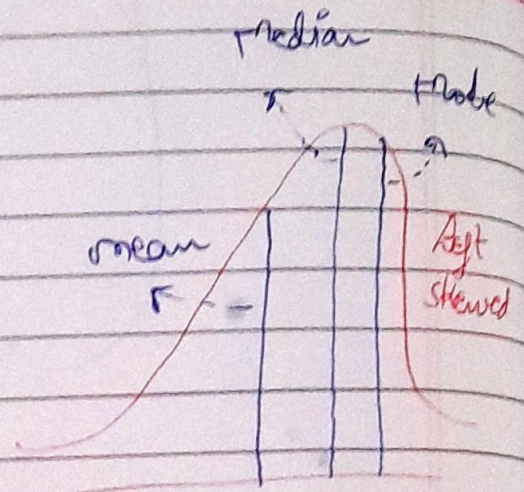 Median
Mode
mean
Left
skewed